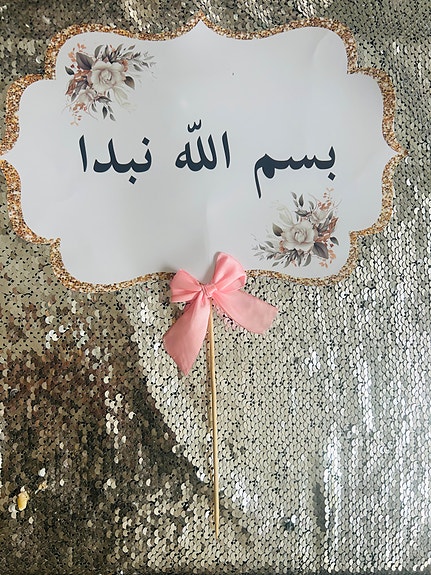 بسم الله نبدا